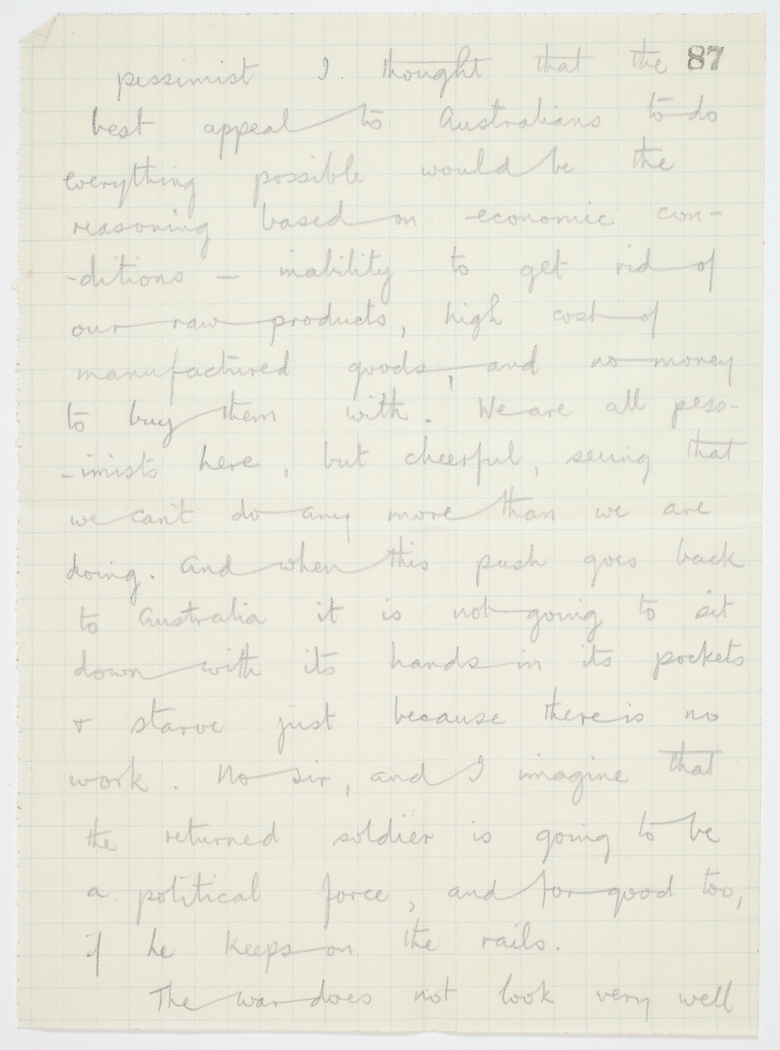 87
pessimist I thought that the
best appeal to Australians to do
everything possible would be the
reasoning based on economic con-
-ditions – inability to get rid of
our raw products, high cost of
manufactured goods, and no money
to buy them with. We are all pess-
-imists here, but cheerful, seeing that
we can't do any more than we are
doing. And when this push goes back
to Australia it is not going to sit
down with its hands in its pockets
& starve just because there is no
work. No sir, and I imagine that
the returned soldier is going to be
a political force, and for good too,
if he keeps on the rails.
The war does not look very well